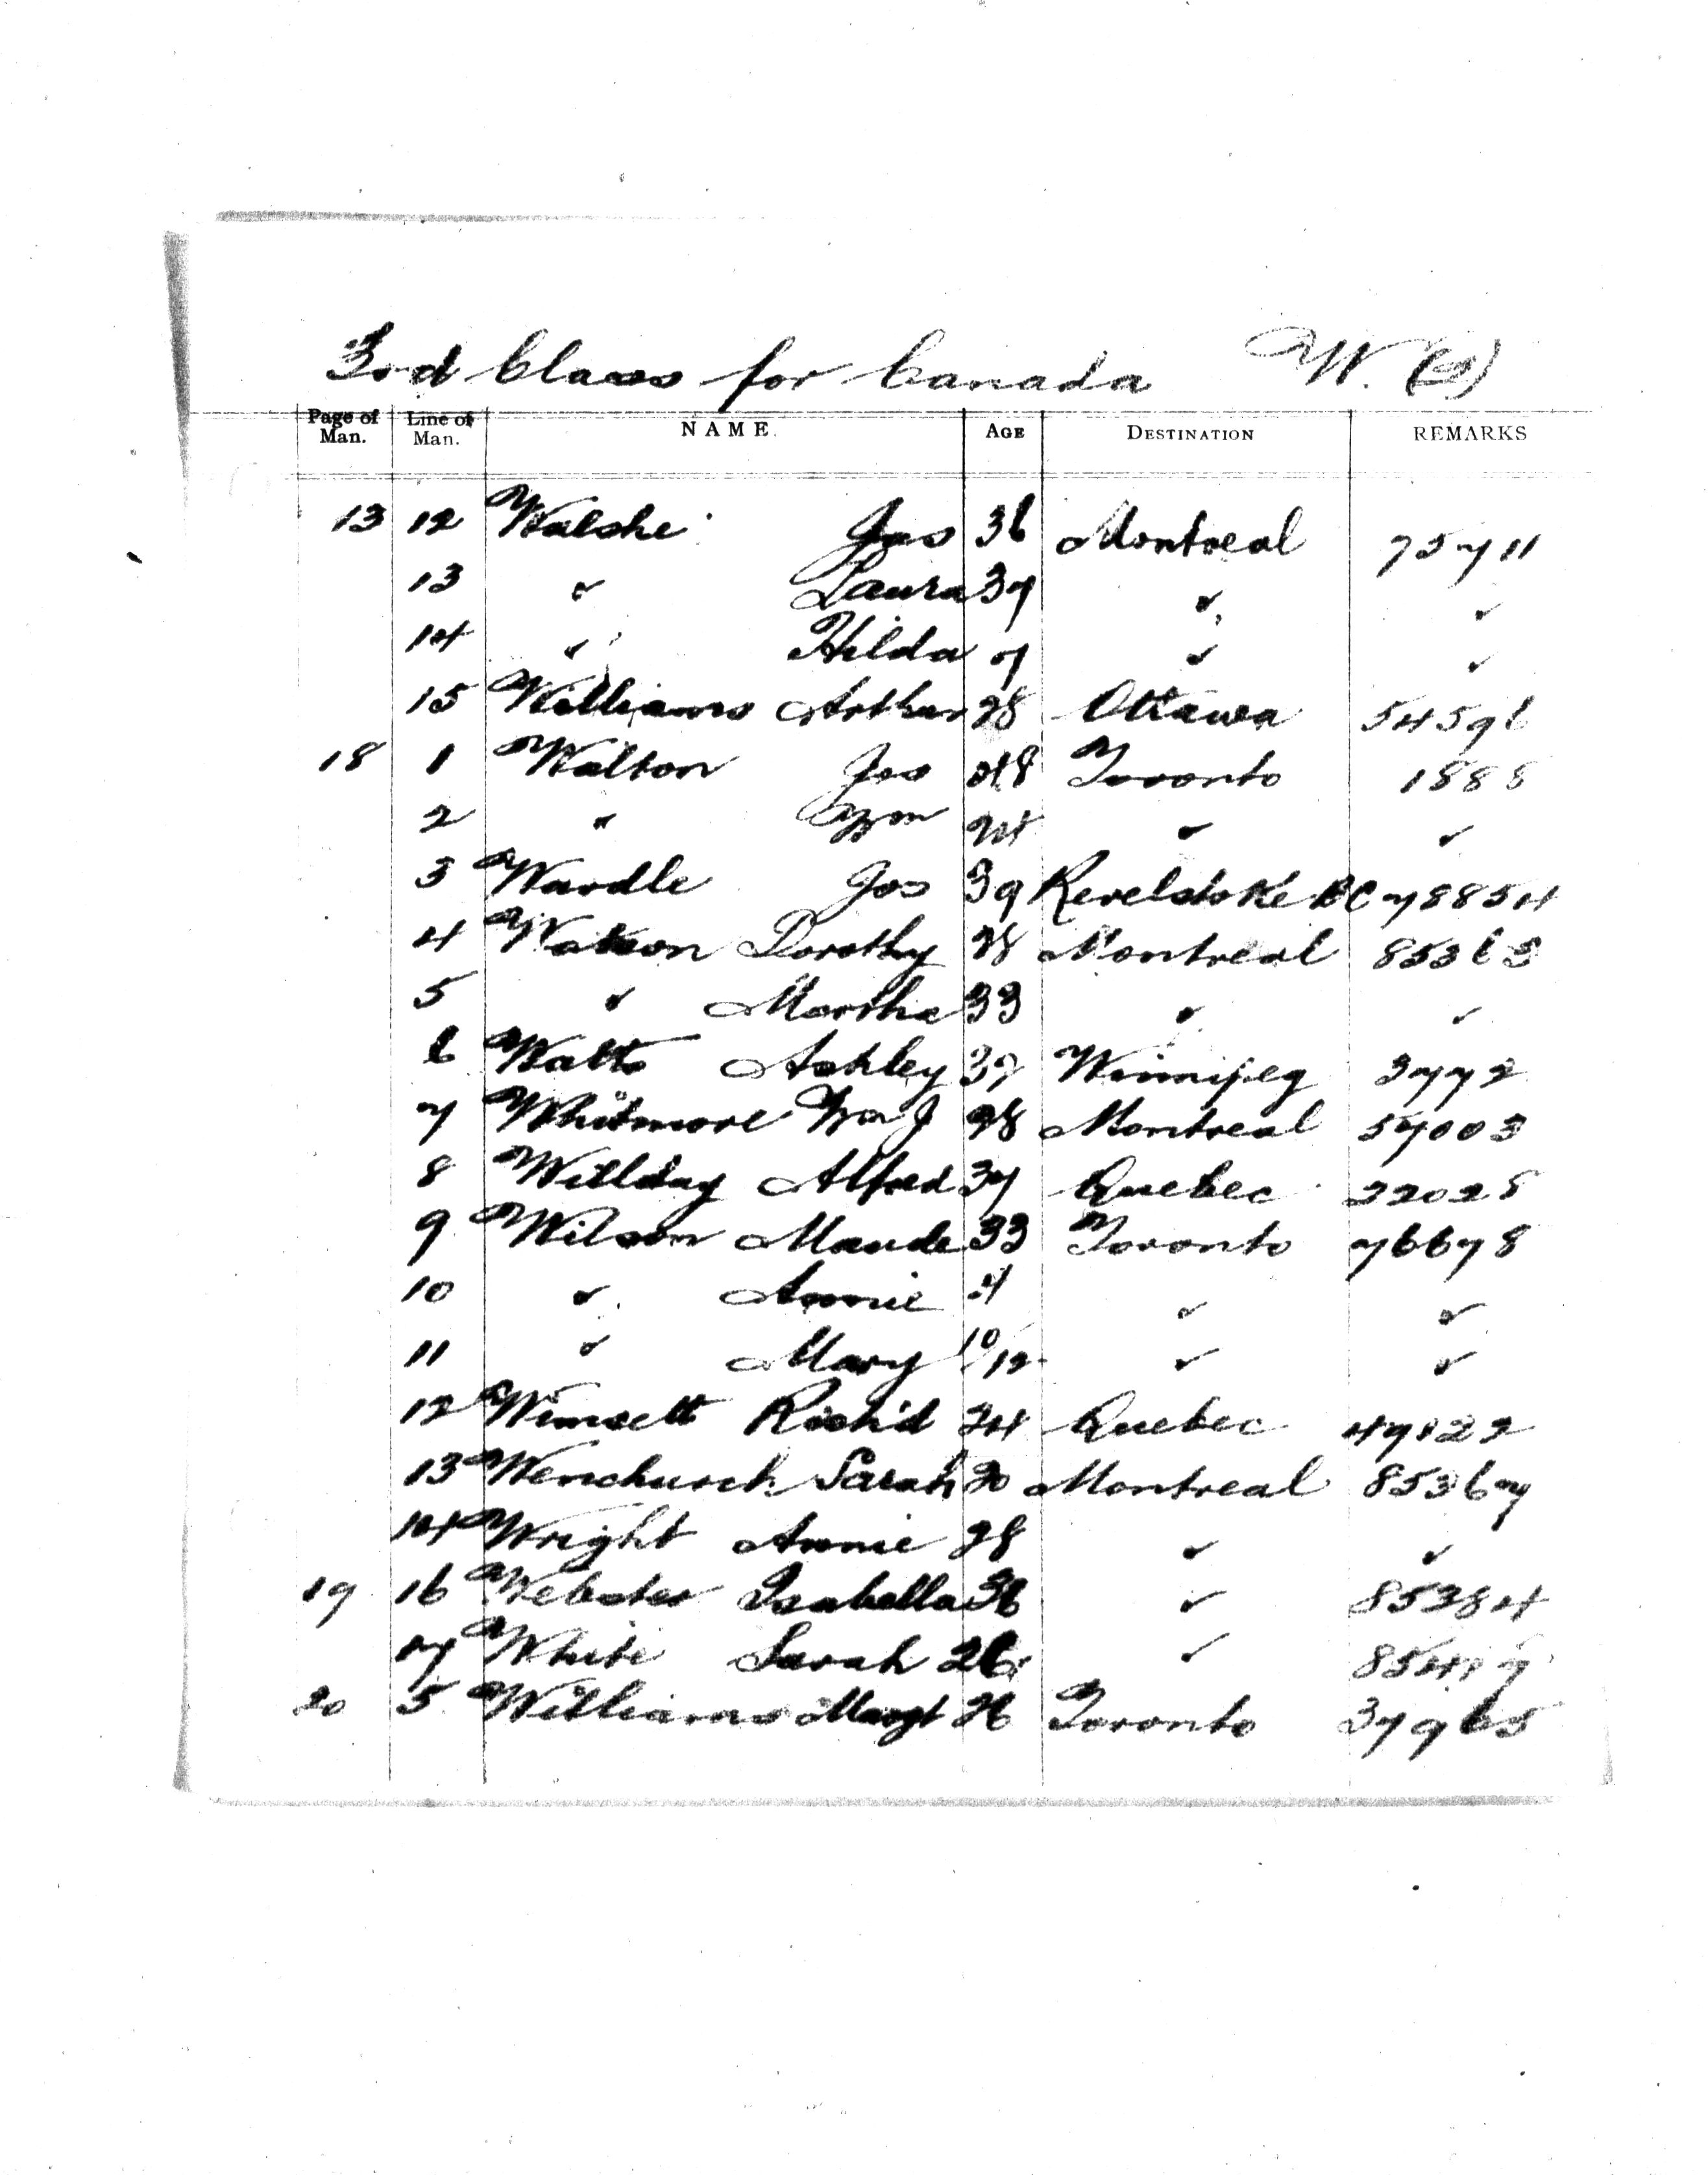 3rd Class for Canada W. (2)
Page of Man. Line of Man. NAME. AGE DESTINATION REMARKS
13 12 Walshe Jas 36 Montreal 75711
13 " Laura 37 " "
14 " Hilda 7 " "
15 Williams Arthur 28 Ottawa 54596
18 1 Walton Jos 48 Toronto 1888
2 " Wm 24 " "
3 Wardle Jos 39 Revelstoke BC 78854
4 Watson Dorothy 28 Montreal 85363
5 " Martha 33 " "
6 Watts Ashley 37 Winnipeg 3772
7 Whitmore Wm J 28 Montreal 57003
8 Willday Alfred 37 Quebec 22025
9 Wilson Maude 33 Toronto 76678
10 " Annie 4 " "
11 " Mary 10/12 " "
12 Wimsett Rich'd 24 Quebec 49122
13 Wenchurch Sarah 20 Montreal 85367
14 Wright Annie 28 " "
19 16 Webster Isabella 36 " 85384
17 White Sarah 26 "
20 5 Williams Margt 26 Toronto 37965